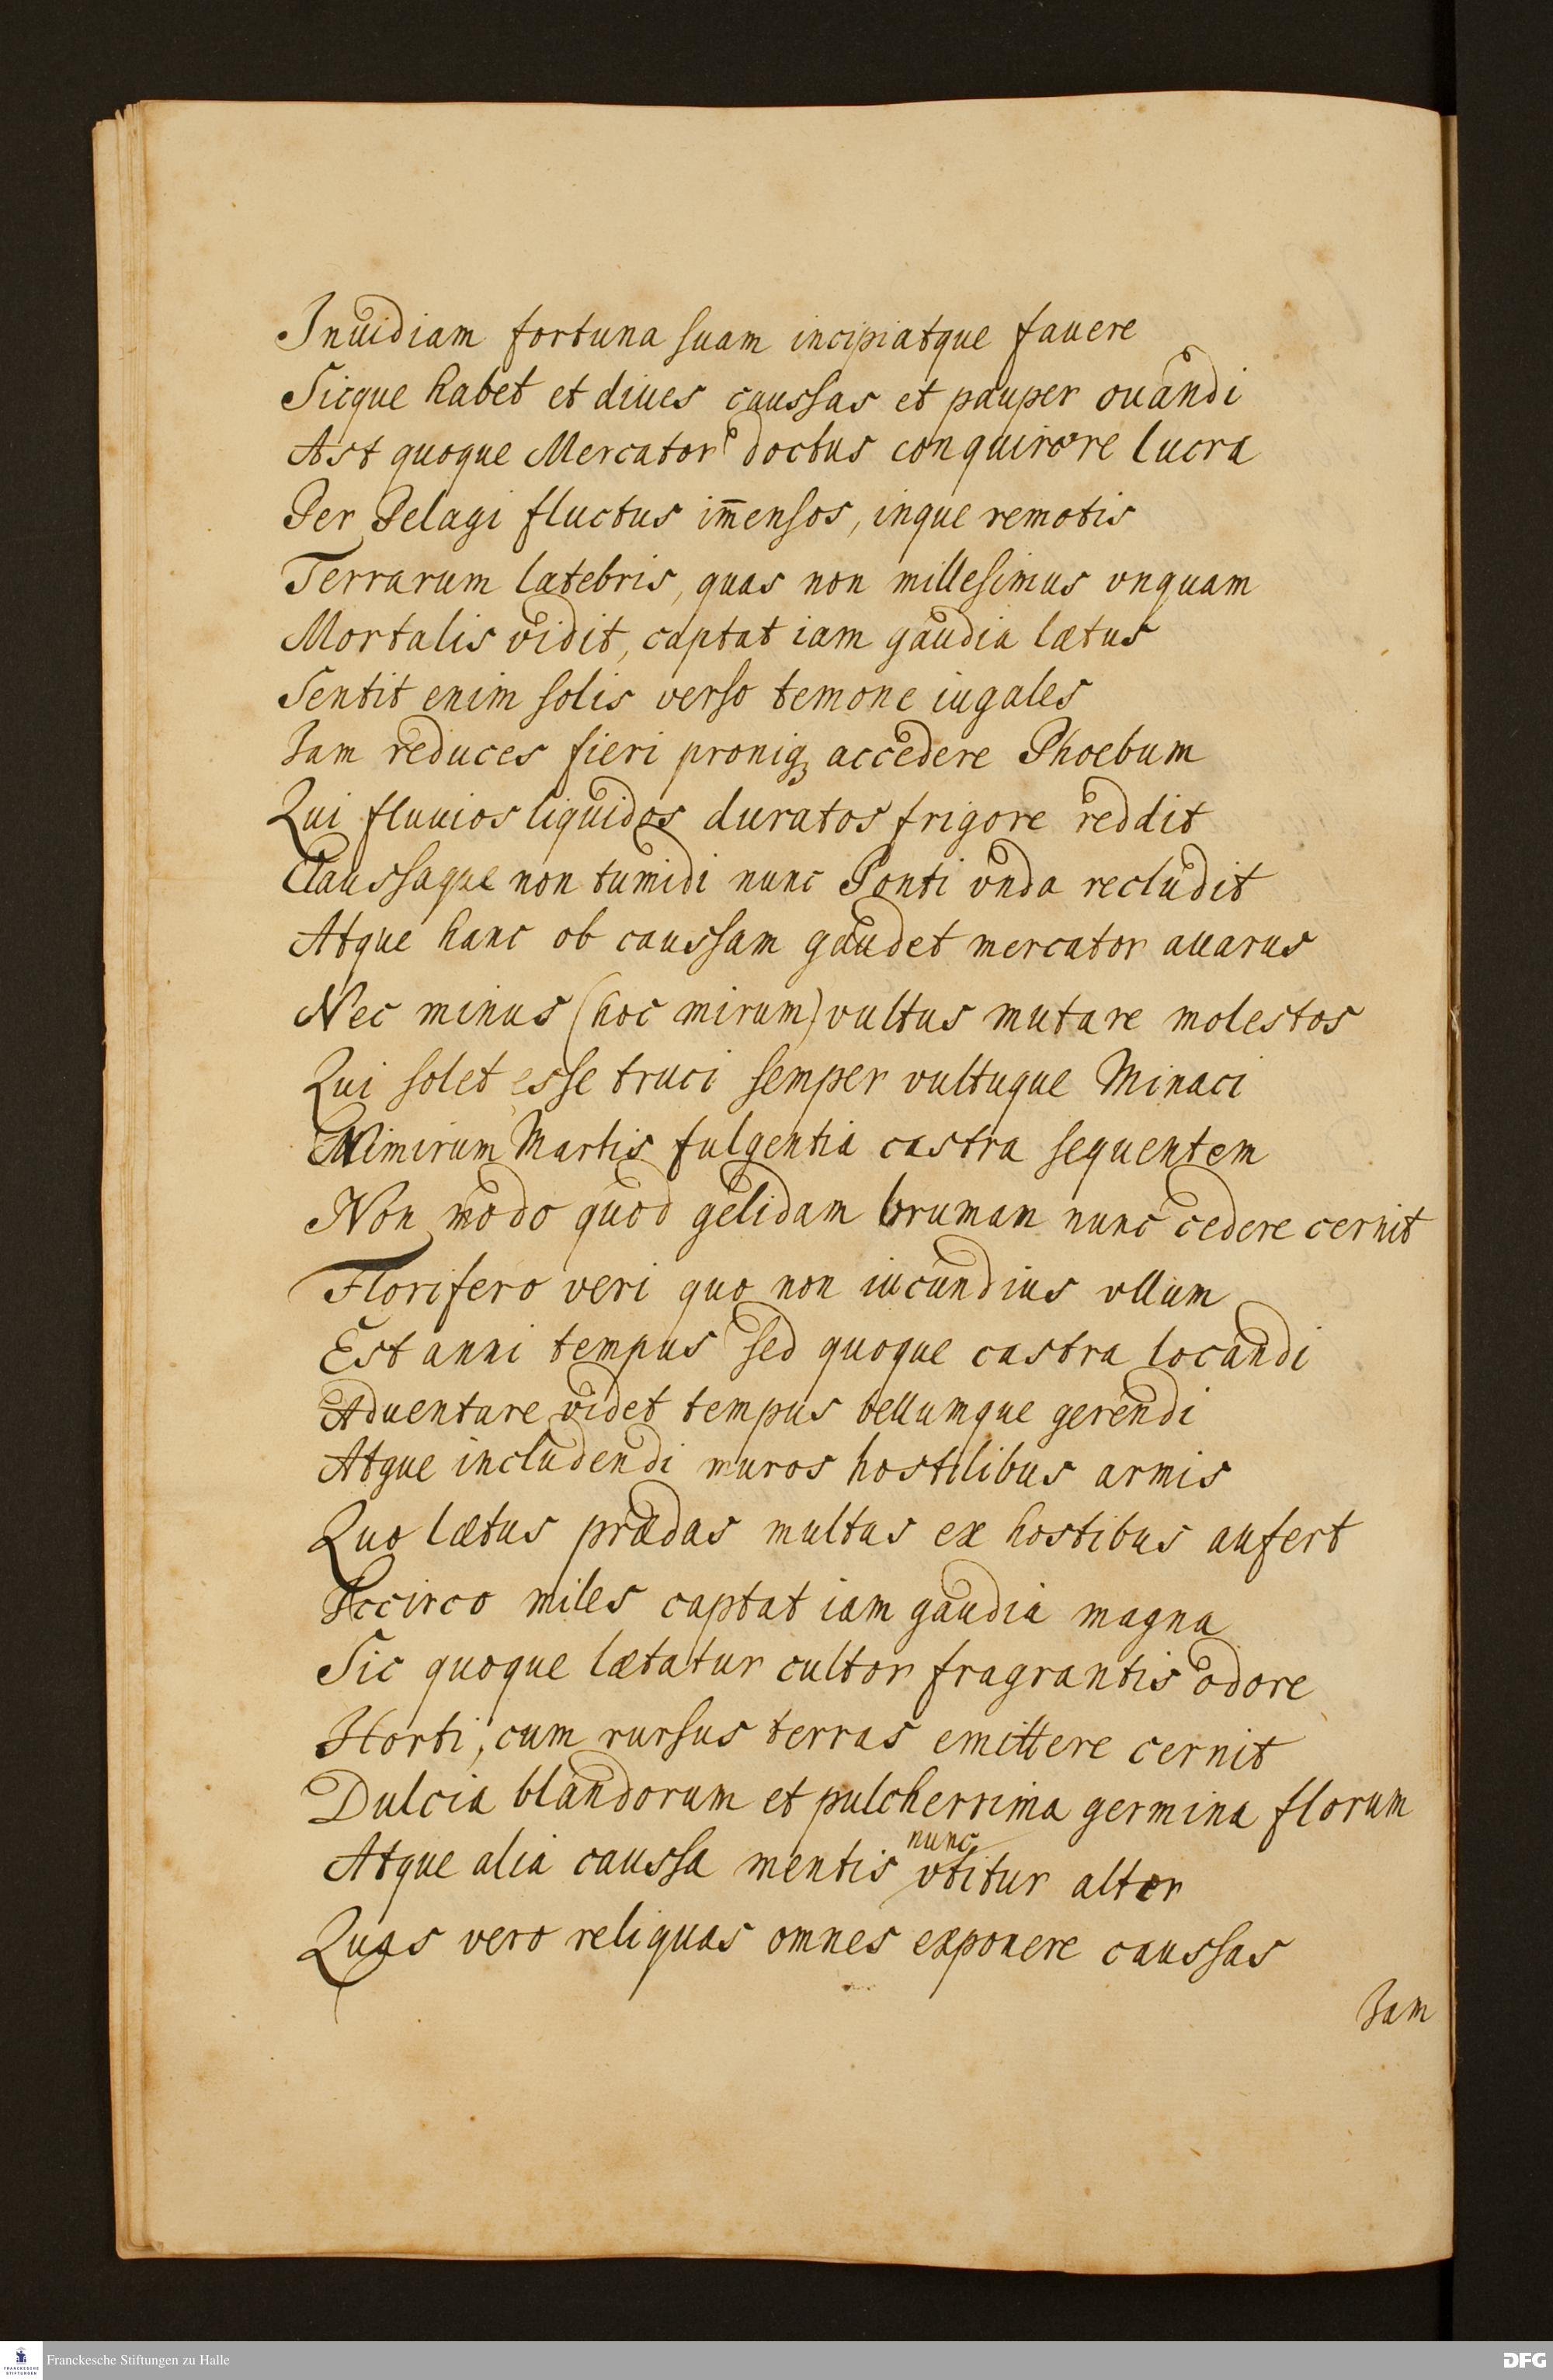 Inuidiam fortuna suam incipiatque fauere
Sicque habet et diues caussas et pauper ouandi
Ast quoque Mercator doctus conquirere lucra
Per Pelagi fluctus im̄ensos, inque remotis
Terrarum latebris, quas non millesimus vnquam
Mortalis vidit, captat iam gaudia lætus
Sentit enim solis verso temone iugales
Iam reduces fieri proniq; accedere Phoebum
Qui fluuios liquidos duratos frigore reddit
Claussaque non tumidi nunc Ponti vnda recludit
Atque hanc ob caussam gaudet mercator auarus
Nec minus (hoc mirum) vultus mutare molestos
Qui solet esse truci semper vultuque Minaci
Nimirum Martis fulgentia castra sequentem
Non modo quod gelidam brumam nunc cedere cernit
Florifero veri quo non iucundius vllum
Est anni tempus sed quoque castra locandi
Aduentare videt tempus bellumque gerendi
Atque includendi muros hostilibus armis
Quo lætus prædas multas ex hostibus aufert
Iccirco miles captat iam gaudia magna
Sic quoque lætatur cultor fragrantis odore
Horti, cum rursus terras emittere cernit
Dulcia blandorum et pulcherrima germina florum
Atque alia caussa mentis nunc vtitur alter
Quas vero reliquas omnes exponere caussas
Iam
Franckesche Stiftungen zu Halle
DFG